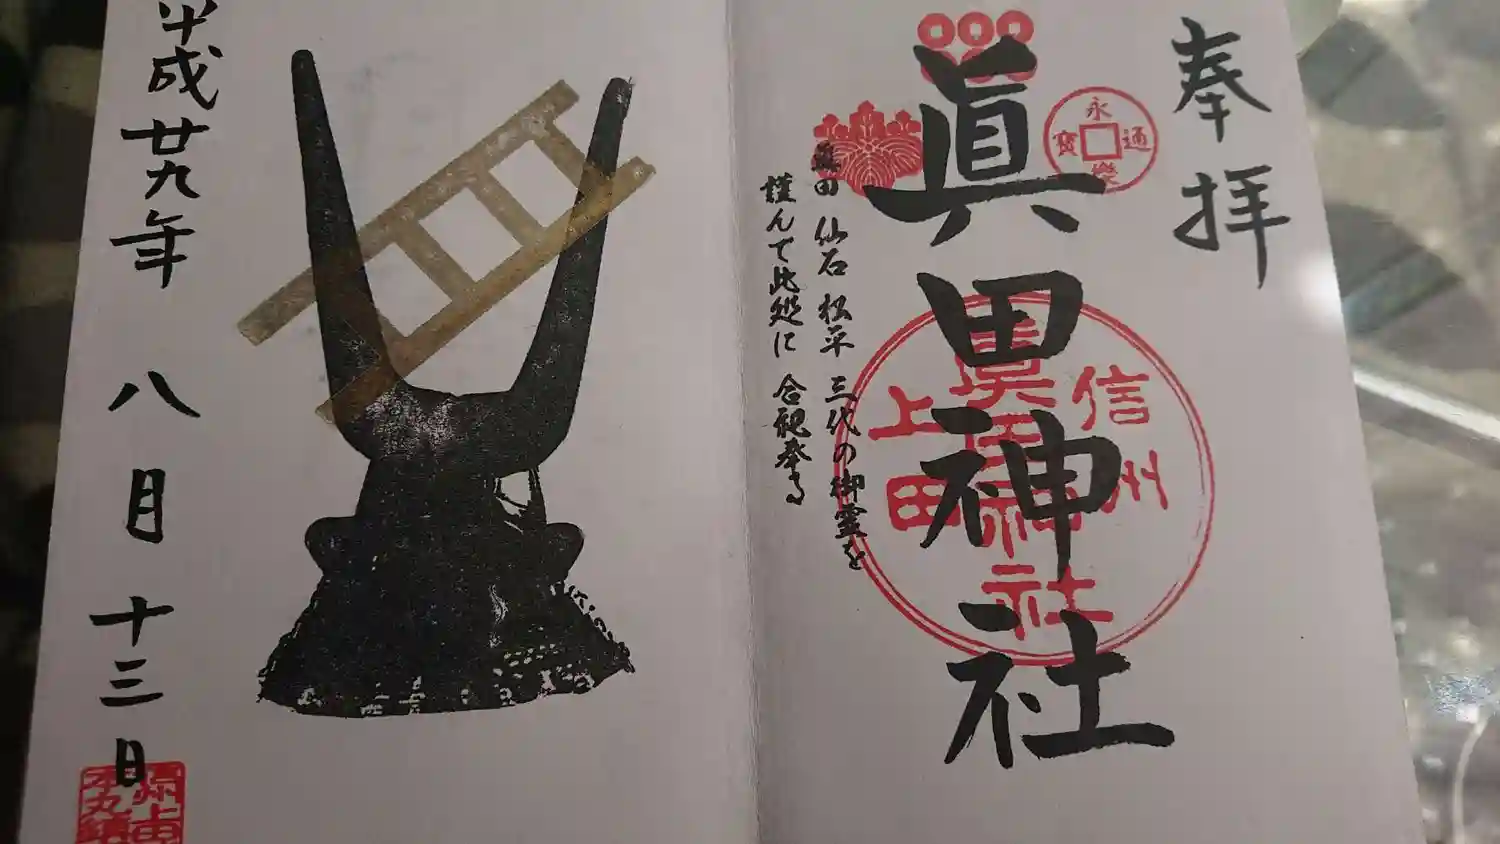 奉拝
眞田神社
永樂通寳
信州
上田
眞田神社
眞田 仙石 松平 三代の御霊を
謹んで此処に 合祀奉る
平成廿九年 八月 十三日